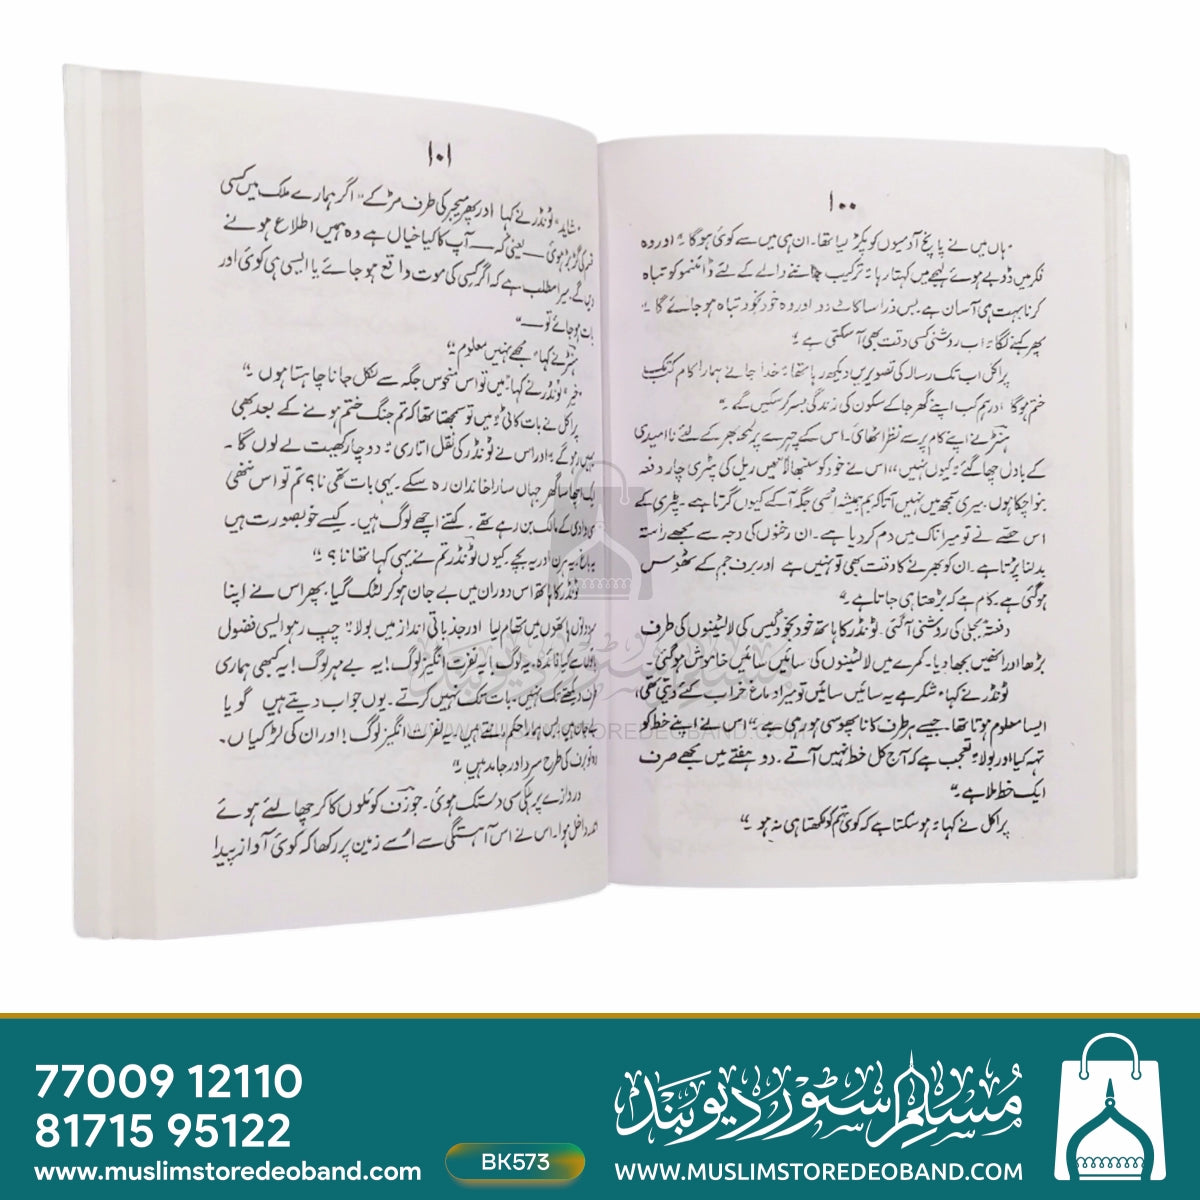 ۱۰۰
"ہاں میں نے پانچ آدمیوں کو پکڑ لیا تھا۔ ان ہی میں سے کوئی ہوگا۔" اور وہ
فکر میں ڈوبے ہوئے لہجے میں کہتا رہا "ترکیب جاننے والے کے لئے ڈائنمو کو تباہ
کرنا بہت ہی آسان ہے۔ بس ذرا سا کاٹ دو اور وہ خود بخود تباہ ہو جائے گا۔"
پھر کہنے لگا "اب روشنی کسی وقت بھی آ سکتی ہے۔"
پراکل اب تک رسالہ کی تصویریں دیکھ رہا تھا "خدا جانے ہمارا کام کب تک
ختم ہوگا اور ہم کب اپنے گھر جا کے سکون کی زندگی بسر کر سکیں گے۔"
ہنٹر نے اپنے کام پر سے نظر اٹھائی۔ اس کے چہرے پر لمحہ بھر کے لئے نا امیدی
کے بادل چھا گئے "کیوں نہیں" اس نے خود کو سنبھالا "میں ریل کی پٹری چار دفعہ
بنوا چکا ہوں۔ میری سمجھ میں نہیں آتا کہ بم ہمیشہ اسی جگہ آ کے کیوں گرتا ہے۔ پٹری کے
اس حصّے نے تو میرا ناک میں دم کر دیا ہے۔ ان رخنوں کی وجہ سے مجھے راستہ
بدلنا پڑتا ہے۔ ان کو بھرنے کا وقت بھی تو نہیں ہے اور برف جم کے ٹھوس
ہو گئی ہے۔ کام ہے کہ بڑھتا ہی جاتا ہے۔"
دفعتہً بجلی کی روشنی آ گئی۔ ٹونڈر کا ہاتھ خود بخود گیس کی لالٹینوں کی طرف
بڑھا اور انھیں بجھا دیا۔ کمرے میں لالٹینوں کی سائیں سائیں خاموش ہو گئی۔
ٹونڈر نے کہا "شکر ہے یہ سائیں سائیں تو میرا دماغ خراب کئے دیتی تھی،
ایسا معلوم ہوتا تھا۔ جیسے ہر طرف کانا پھوسی ہو رہی ہے" اس نے اپنے خط کو
تہہ کیا اور بولا "تعجب ہے کہ آج کل خط نہیں آتے۔ دو ہفتے میں مجھے صرف
ایک خط ملا ہے۔"
پراکل نے کہا "ہو سکتا ہے کہ کوئی تم کو لکھتا ہی نہ ہو۔"
۱۰۱
"شاید" ٹونڈر نے کہا اور پھر میجر کی طرف مڑ کے "اگر ہمارے ملک میں کسی
قسم کی گڑبڑ ہوئی — یعنی کہ — آپ کا کیا خیال ہے وہ ہمیں اطلاع ہونے
دیں گے۔ میرا مطلب ہے کہ اگر کسی کی موت واقع ہو جائے یا ایسی ہی کوئی اور
بات ہو جائے تو —"
ہنٹر نے کہا "مجھے نہیں معلوم۔"
"خیر" ٹونڈر نے کہا "میں تو اس منحوس جگہ سے نکل جانا چاہتا ہوں۔"
پراکل نے بات کاٹی "میں تو سمجھتا تھا کہ تم جنگ ختم ہونے کے بعد بھی
یہیں رہو گے" اور اس نے ٹونڈر کی نقل اتاری "دو چار کھیت لے لوں گا۔
ایک اچھا سا گھر جہاں سارا خاندان رہ سکے۔ یہی بات تھی نا؟ تم تو اس ننھی
سی وادی کے مالک بن رہے تھے۔ کتنے اچھے لوگ ہیں۔ کیسے خوبصورت ہیں
یہ باغ، یہ ہرن اور یہ بچے۔ کیوں ٹونڈر تم نے یہی کہا تھا نا؟"
ٹونڈر کا ہاتھ اس دوران میں بے جان ہو کر لٹک گیا، پھر اس نے اپنا
سر دونوں ہاتھوں میں تھام لیا اور جذباتی انداز میں بولا "چپ رہو ایسی فضول
باتوں سے کیا فائدہ، یہ لوگ! یہ نفرت انگیز لوگ! یہ بے مہر لوگ! یہ کبھی ہماری
طرف دیکھتے تک نہیں۔ بات تک نہیں کرتے۔ یوں جواب دیتے ہیں گویا
بے جان ہیں۔ بس ہمارا حکم مانتے ہیں۔ یہ نفرت انگیز لوگ! اور ان کی لڑکیاں۔
وہ تو برف کی طرح سرد اور جامد ہیں۔"
دروازے پر ہلکی سی دستک ہوئی۔ جوزف کوئلوں کا کرچھا لئے ہوئے
اندر داخل ہوا۔ اس نے اس آہستگی سے اُسے زمین پر رکھا کہ کوئی آواز پیدا
مسلم سٹور دیوبند
WWW.MUSLIMSTOREDEOBAND.COM
77009 12110
81715 95122
www.muslimstoredeoband.com
BK573
مسلم سٹور دیوبند
www.MUSLIMSTOREDEOBAND.COM